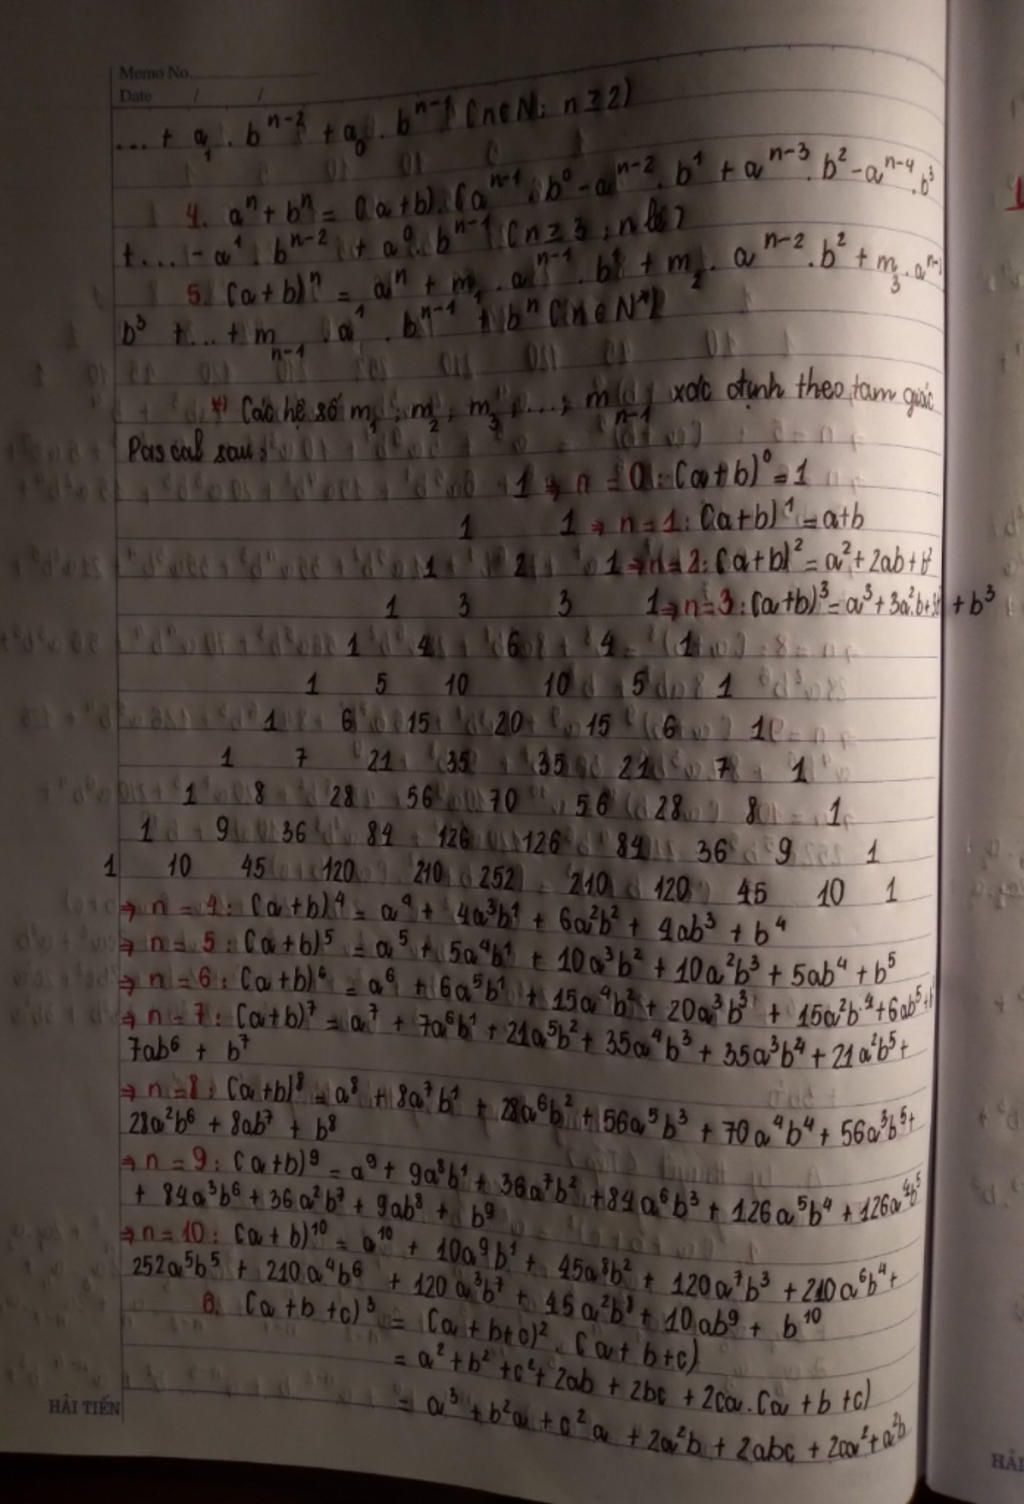 Memo No.
Date / /
... + a₁ . bⁿ⁻² + a₀ . bⁿ⁻¹ (n∈N; n≥2)
4. aⁿ + bⁿ = (a+b).(aⁿ⁻¹ . b⁰ - aⁿ⁻² . b¹ + aⁿ⁻³ . b² - aⁿ⁻⁴ . b³
+ ... - a¹ . bⁿ⁻² + a⁰ . bⁿ⁻¹ (n≥3; n lẻ)
5. (a+b)ⁿ = aⁿ + m₁ . aⁿ⁻¹ . b¹ + m₂ . aⁿ⁻² . b² + m₃ . aⁿ⁻
b³ + ... + mₙ₋₁ . a¹ . bⁿ⁻¹ + bⁿ (n∈N*)
*) Các hệ số m₁; m₂; m₃; ...; mₙ₋₁ xác định theo tam giác
Pascal sau:
1 ⇒ n = 0: (a+b)⁰ = 1
1 1 ⇒ n = 1: (a+b)¹ = a+b
1 2 1 ⇒ n = 2: (a+b)² = a² + 2ab + b²
1 3 3 1 ⇒ n = 3: (a+b)³ = a³ + 3a²b + + b³
1 4 6 4 1
1 5 10 10 5 1
1 6 15 20 15 6 1
1 7 21 35 35 21 7 1
1 8 28 56 70 56 28 8 1
1 9 36 84 126 126 84 36 9 1
1 10 45 120 210 252 210 120 45 10 1
⇒ n = 4: (a+b)⁴ = a⁴ + 4a³b¹ + 6a²b² + 4ab³ + b⁴
⇒ n = 5: (a+b)⁵ = a⁵ + 5a⁴b¹ + 10a³b² + 10a²b³ + 5ab⁴ + b⁵
⇒ n = 6: (a+b)⁶ = a⁶ + 6a⁵b¹ + 15a⁴b² + 20a³b³ + 15a²b⁴ + 6ab⁵ +
⇒ n = 7: (a+b)⁷ = a⁷ + 7a⁶b¹ + 21a⁵b² + 35a⁴b³ + 35a³b⁴ + 21a²b⁵ +
7ab⁶ + b⁷
⇒ n = 8: (a+b)⁸ = a⁸ + 8a⁷b¹ + 28a⁶b² + 56a⁵b³ + 70a⁴b⁴ + 56a³b⁵ +
28a²b⁶ + 8ab⁷ + b⁸
⇒ n = 9: (a+b)⁹ = a⁹ + 9a⁸b¹ + 36a⁷b² + 84a⁶b³ + 126a⁵b⁴ + 126a⁴b⁵
+ 84a³b⁶ + 36a²b⁷ + 9ab⁸ + b⁹
⇒ n = 10: (a+b)¹⁰ = a¹⁰ + 10a⁹b¹ + 45a⁸b² + 120a⁷b³ + 210a⁶b⁴ +
252a⁵b⁵ + 210a⁴b⁶ + 120a³b⁷ + 45a²b⁸ + 10ab⁹ + b¹⁰
6. (a+b+c)³ = (a+b+c)² . (a+b+c)
= a² + b² + c² + 2ab + 2bc + 2ca . (a+b+c)
= a³ + b²a + c²a + 2a²b + 2abc + 2ca² + a²b
HẢI TIẾN
HẢI